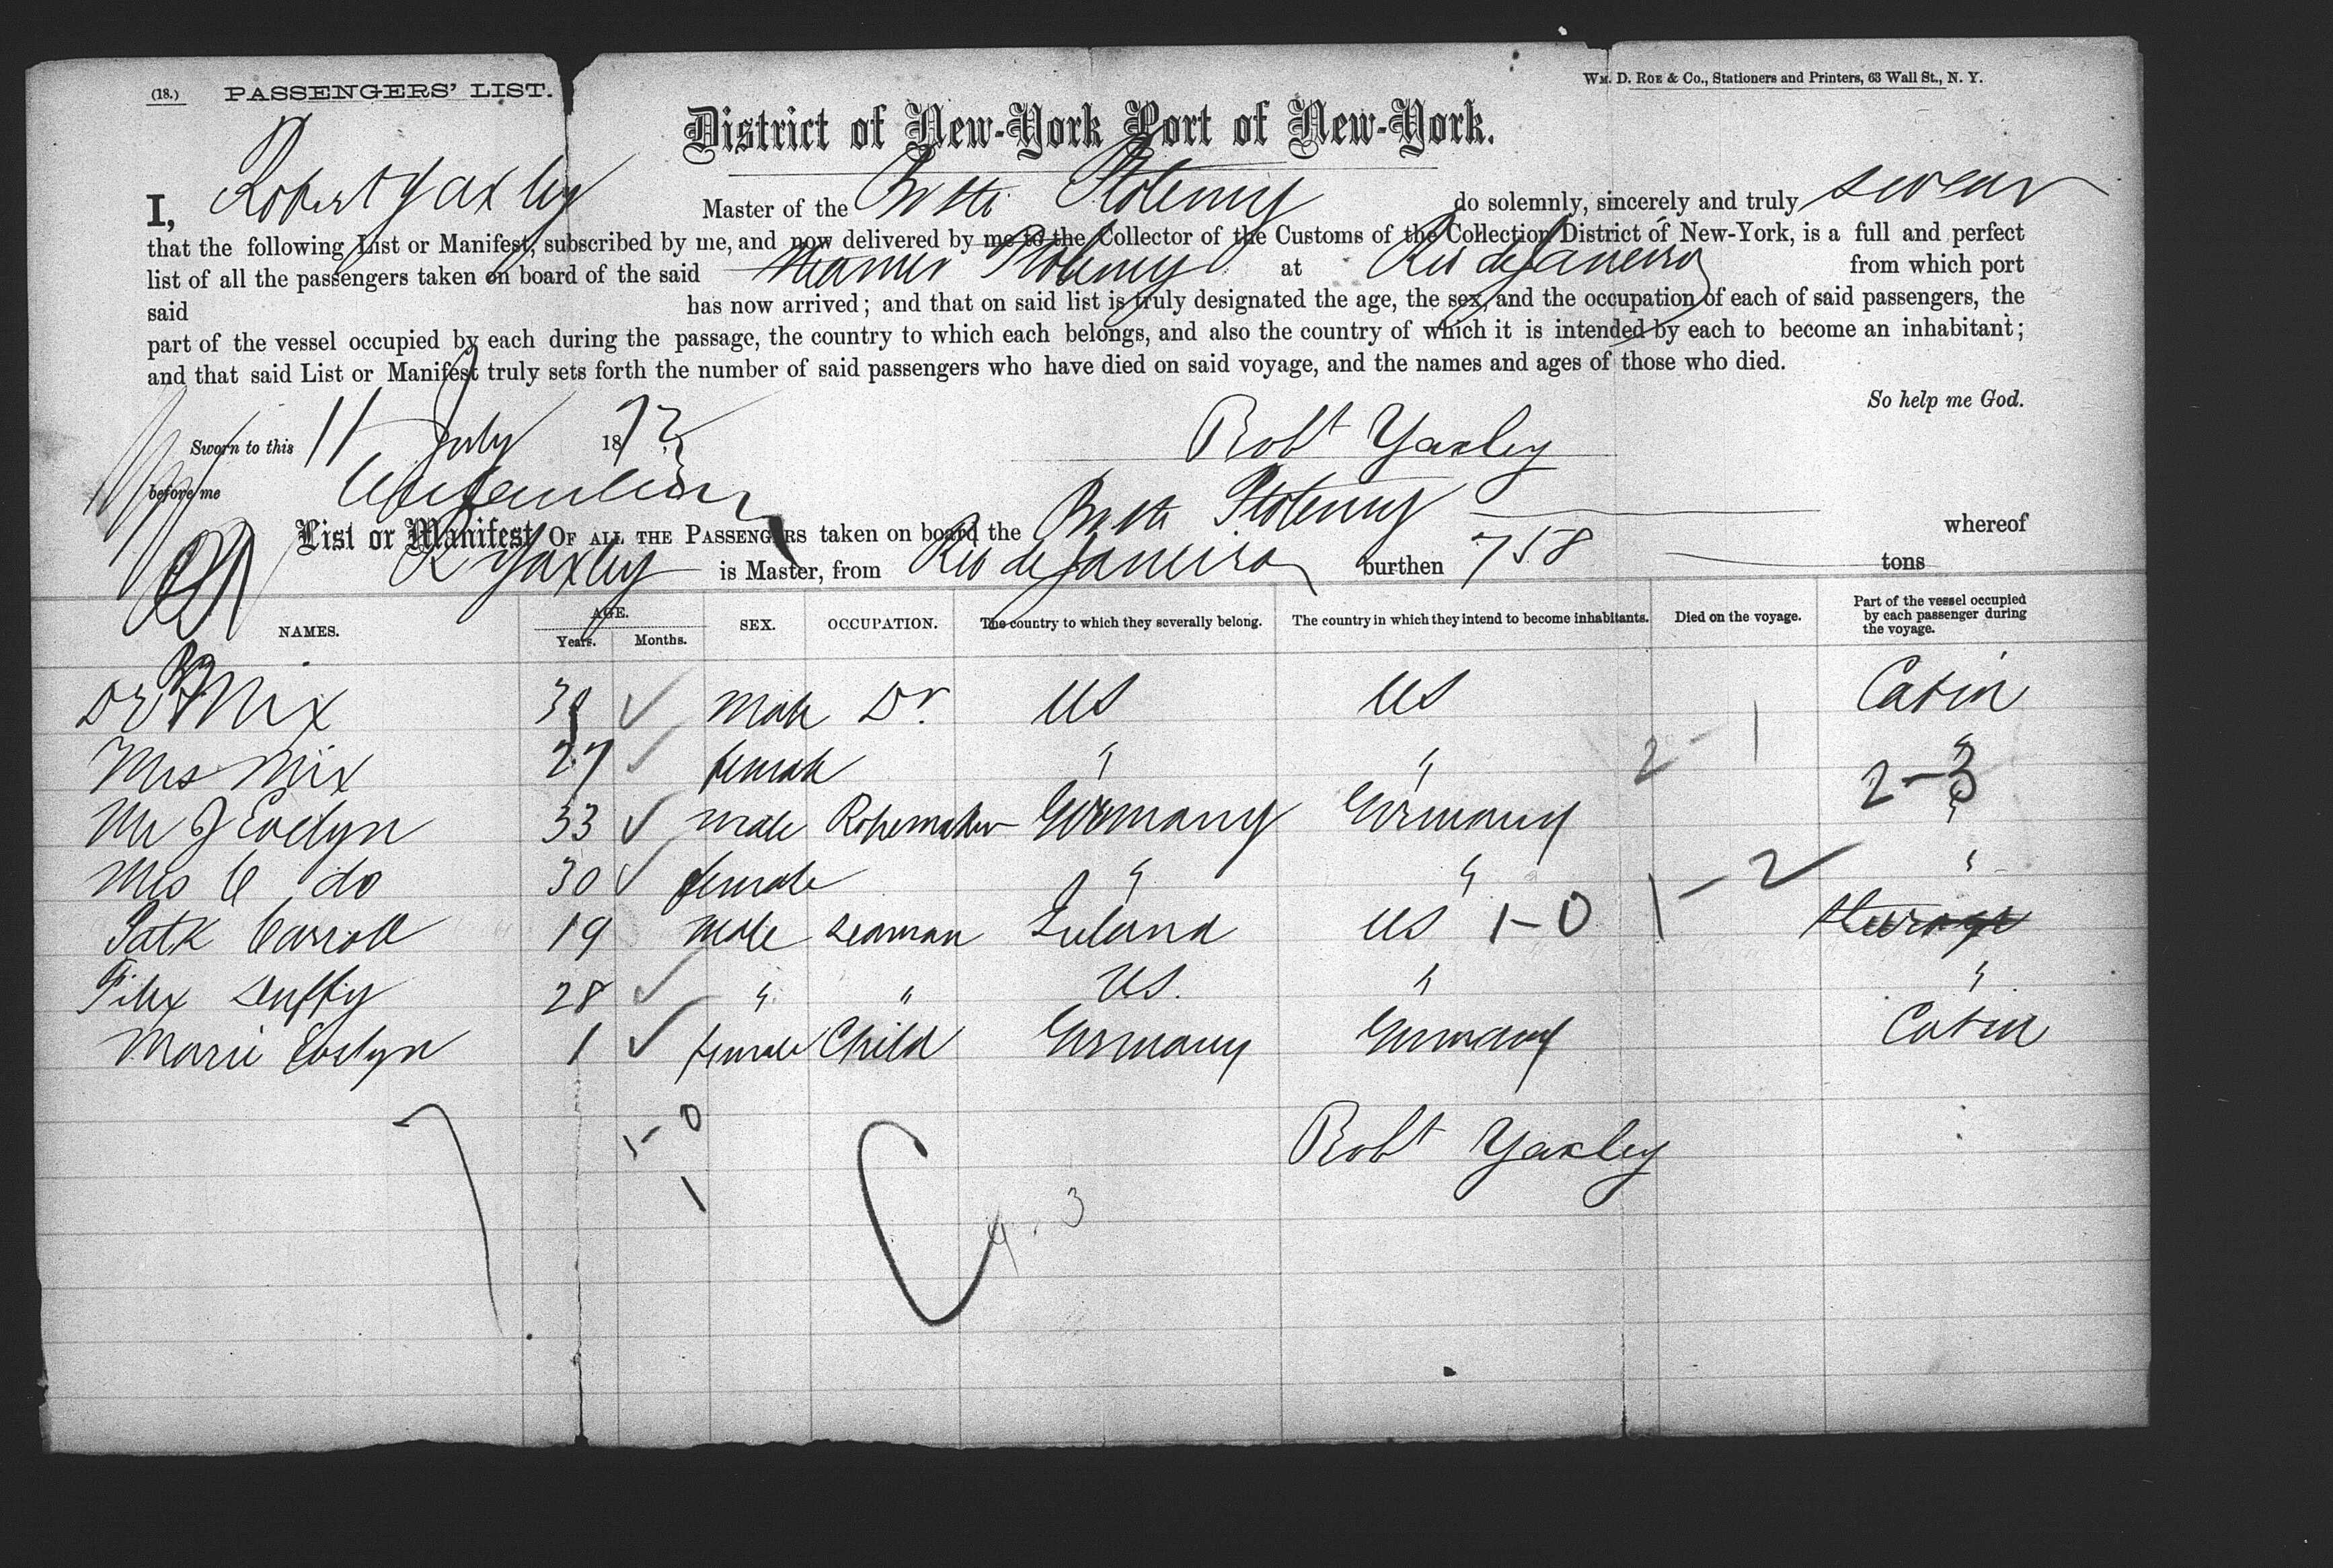 (18.) PASSENGERS' LIST.
WM. D. ROE & Co., Stationers and Printers, 63 Wall St., N. Y.
District of New-York Port of New-York.
I, Robert Yaxley Master of the Br Str Ptolemy do solemnly, sincerely and truly swear
that the following List or Manifest, subscribed by me, and now delivered by me to the Collector of the Customs of the Collection District of New-York, is a full and perfect
list of all the passengers taken on board of the said Steamer Ptolemy at Rio de Janeiro from which port
said has now arrived; and that on said list is truly designated the age, the sex, and the occupation of each of said passengers, the
part of the vessel occupied by each during the passage, the country to which each belongs, and also the country of which it is intended by each to become an inhabitant;
and that said List or Manifest truly sets forth the number of said passengers who have died on said voyage, and the names and ages of those who died.
So help me God.
Sworn to this 11 July 1873
Robt Yaxley
before me
List or Manifest OF ALL THE PASSENGERS taken on board the Br Str Ptolemy whereof
R Yaxley is Master, from Rio de Janeiro burthen 758 tons
NAMES. AGE. Years. Months. SEX. OCCUPATION. The country to which they severally belong. The country in which they intend to become inhabitants. Died on the voyage. Part of the vessel occupied by each passenger during the voyage.
Mix male Dr. US US Cabin
Mrs Mix 27 female " " 2-1 "
2-3
Mr J Evelyn 33 male Ropemaker Germany Germany "
Mrs C do 30 female " " 1-2 "
Patk Carroll 19 male seaman Ireland US 1-0 Steerage
Felix Duffy 28 " " US. " "
Marie Evelyn 1 female Child Germany Germany Cabin
7 1-0
1
Robt Yaxley
4. 3